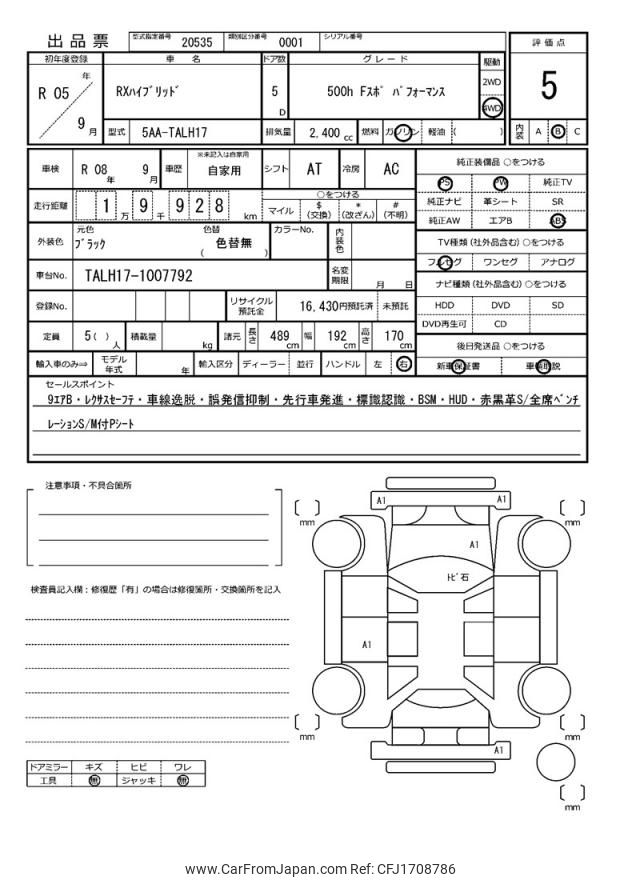 出品票 型式指定番号 20535 類別区分番号 0001 シリアル番号
初年度登録 車 名 ドア数 グレード 駆動 評価点
R 05 年 9 月 RXハイブリッド 5 D 500h Fスポ パフォーマンス 2WD 4WD 5
型式 5AA-TALH17 排気量 2,400 cc 燃料 ガソリン 軽油 ( ) 内装 A B C
車検 R 08 年 9 月 車歴 ※未記入は自家用 自家用 シフト AT 冷房 AC 純正装備品 ○をつける
PS PW 純正TV
走行距離 1 万 9 千 9 2 8 km ○をつける 純正ナビ 革シート SR
マイル $ (交換) * (改ざん) # (不明) 純正AW エアB ABS
外装色 元色 ブラック 色替 ( 色替無 ) カラーNo. 内装色 TV種類 (社外品含む) ○をつける
フルセグ ワンセグ アナログ
車台No. TALH17-1007792 名変期限 月 日 ナビ種類 (社外品含む) ○をつける
登録No. リサイクル預託金 16,430円預託済 未預託 HDD DVD SD
DVD再生可 CD
定員 5( ) 人 積載量 kg 諸元 長さ 489 cm 幅 192 cm 高さ 170 cm 後日発送品 ○をつける
輸入車のみ⇒ モデル年式 年 輸入区分 ディーラー 並行 ハンドル 左 右 新車保証書
セールスポイント
9エアB・レクサスセーフテ・車線逸脱・誤発信抑制・先行車発進・標識認識・BSM・HUD・赤黒革S/全席ベンチ
レーションS/M付Pシート
注意事項・不具合箇所
検査員記入欄：修復歴「有」の場合は修復箇所・交換箇所を記入
A1 A1
mm mm
A1
トビ石
A1
mm mm
A1
mm
ドアミラー キズ ヒビ ワレ
工具 無 ジャッキ 無
www.CarFromJapan.com Ref: CFJ1708786